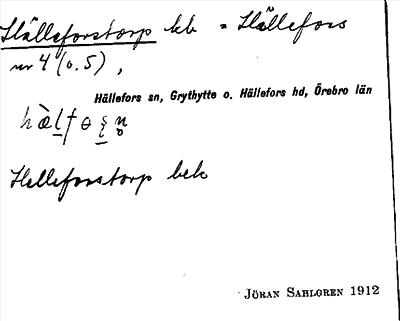 Hälleforstorp kb = Hällefors
nr 4 (o. 5),
Hällefors sn, Grythytte o. Hällefors hd, Örebro län
Helleforstorp bek
JÖRAN SAHLGREN 1912